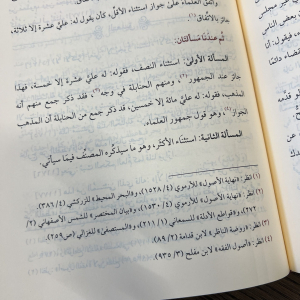 واتفق العلماء على جواز استثناء الأقل، كأن يقول له: عليَّ عشرة إلا ثلاثة،
جائز بالاتفاق(١)
ثم عندنا مسألتان:
المسألة الأولى: استثناء النصف، فقوله: له عليَّ عشرة إلا خمسة، فهذا
جائز عند الجمهور(٢)، ومنهم الحنابلة في وجه(٣)، فقد ذكر جمع منهم أنه
المذهب، فقوله: له عليَّ مائة إلا خمسين، قد ذكر جمع من الحنابلة أن المذهب
الجواز(٤)، وهو قول جمهور العلماء.
المسألة الثانية: استثناء الأكثر، وهو ما سيذكره المصنف فيما سيأتي.
(١) انظر: «نهاية الأصول» للأرموي (٤/ ١٥٢٨)، و«البحر المحيط» للزركشي (٤/ ٣٨٦).
(٢) انظر: «نهاية الأصول» للأرموي (٤/ ١٥٣٠)، و«بيان المختصر» لشمس الأصفهاني (٢/
٢٧٢)، و«قواطع الأدلة» للسمعاني (١/ ٢١١)، و«المستصفى» للغزالي (ص٢٥٩).
(٣) انظر: «روضة الناظر» لابن قدامة (٢/ ٨٩).
(٤) انظر: «أصول الفقه» لابن مفلح (٣/ ٩٣٥).